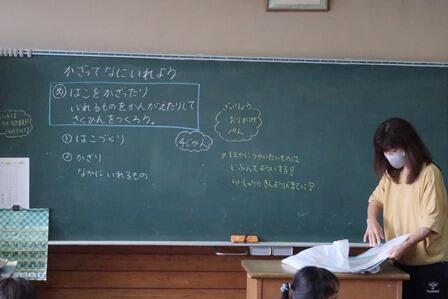 かざってなにいれよう
め はこをかざったり
いれるものをかんがえたりして
さくひんをつくろう。
① はこづくり
4じかん
② かざり
なかにいれるもの
ざいりょう
おりがみ
ぺん
※ほかにつかいたいものは
じぶんでよういする!
らいしゅうのきんようびまでに!